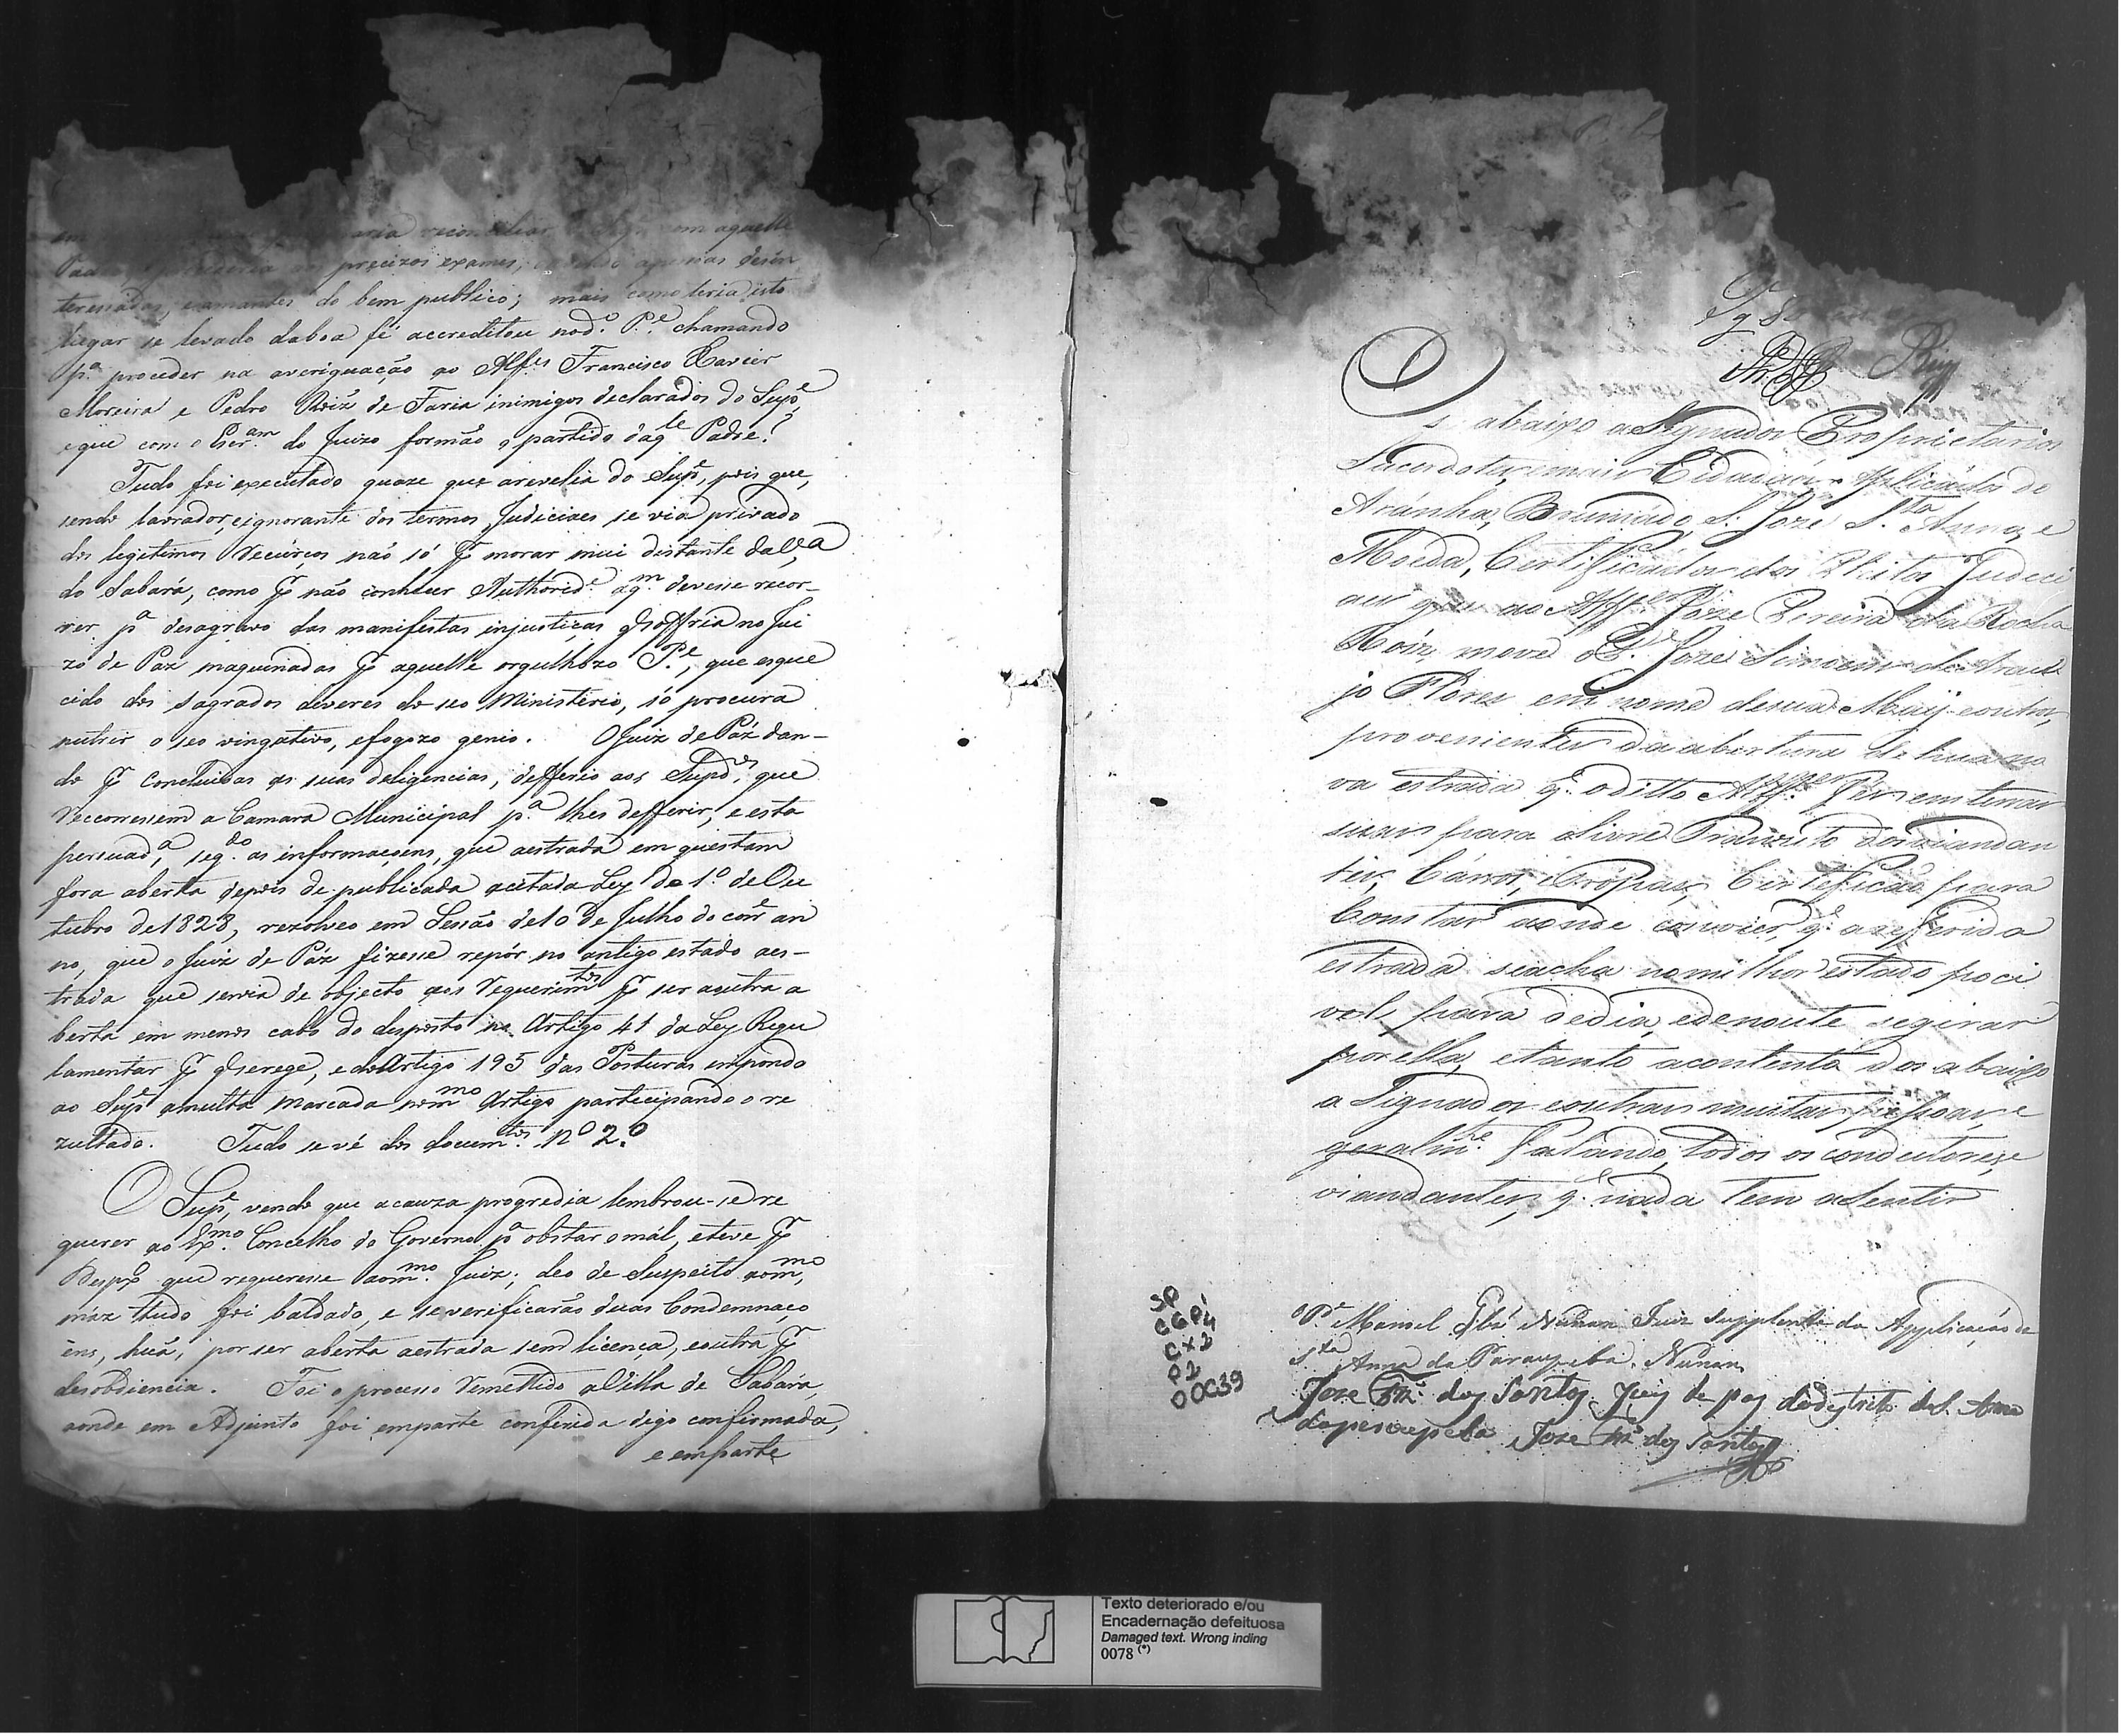 reconciliar aquelle
precizos exames, apenas desin
teressados, e amantes do bem publico; mais como teria isto
lugar se levado da boa fé acreditou no d.º P.e chamando
p.a proceder na averiguação ao Alf.es Francisco Xavier
Moreira e Pedro Roiz de Faria inimigos declarados do Sup.e,
e que com o Escr.am do Juizo formão o partido daq.le Padre!
Tudo foi executado quaze que a revelia do Sup.e, pois que,
sendo lavrador, e ignorante dos termos Judiciaes se via privado
dos legitimos recursos não só p.r morar mui distante da V.a
do Sabará, como p.r não conhecer Authorid.e aq.m devesse recor-
rer p.a desagravo das manifestas injustiças q soffria no Jui
zo de Paz maquinadas p.r aquelle orgulhozo P.e, que esque
cido dos sagrados deveres do seo Ministerio, só procura
nutrir o seo vingativo, e fogozo genio. O Juiz de Páz dan-
do p.r concluidas as suas deligencias, defferio aos Supd.os, que
reccorressem a Camara Municipal p.a lhes defferir, e esta
persuad.a, seg.do as informaçoens, que a estrada em questam
fora aberta depois de publicada a citada Ley do 1.º de Ou
tubro de 1828, rezolveo em Sessão de 10 de Julho do corr.e an
no, que o Juiz de Páz fizesse repôr no antigo estado a es-
trada que servia de objecto aos requerim.tos p.r ser a outra a
berta em menos cabo do disposto no Artigo 41 da Ley Regu
lamentar p.r q se rege, e do Artigo 195 das Posturas impondo
ao Sup.e a multa marcada no m.mo Artigo participando o re
zultado. Tudo se vê dos docum.tos Nº 2.º
O Sup.e, vendo que a cauza progredia lembrou-se re
querer ao Ex.mo Concelho do Governo p.a obstar o mál, e teve p.r
Desp.o que requeresse ao m.mo Juiz; deo de Suspeito ao m.mo,
máz tudo foi baldado, e se verificarão duas Condemnaço
ens, huã, por ser aberta a estrada sem licença, e outra p.r
desobdiencia. Foi o processo remettido a Villa de Sabará,
aonde em Adjunto foi em parte conferida digo confirmada,
e em parte
Os abaixo aSignados Proprietarios
Sacerdotes, e mais Cidadãos Aplicados de
Aránha, Brumado, S. Joze S.ta Anna, e
Moeda, Certificados dos Pleitos Judeci
aes que ao Alf.es Joze Pereira da Rocha
Roiz, move o P.e Joze Simoens de Arau
jo Flores em nome de sua Mãy e outros,
provenientes da abertura de huma no
va estrada q. o ditto Alf.es fes em terras
suas para o livre Tranzito dos viandan
tes, Cárros, e Trópas, Certificão para
Constar aonde convier, q. a refferida
estrada se acha no milhor estado poci
vel, para de dia, e de noute se girar
por ella, e tanto a contento dos abaixo
aSignados e outras muitas peSsoas, e
geralm.te falando, todos os conductores, e
viandantes, q. nada tem a Sentir
o P.e Manoel Nunan Juiz Supplente da Applicação de
S.ta Anna da Paraupeba. Nunan
Joze M.el dos Santos Juiz de paz do destrito de S. Anna
da peraupeba Joze M.el dos Santos
SP
CGP1
CX2
P2
00039
Texto deteriorado e/ou
Encadernação defeituosa
Damaged text. Wrong inding
0078 (*)